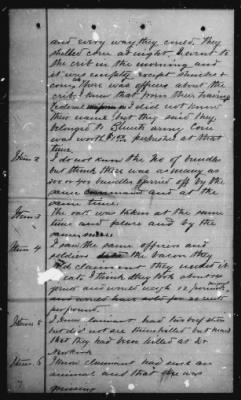 and every way they could. They
shelled corn at night. I went to
the crib in the morning and
it was empty except shucks &
cobs, there was officers about the
crib. I knew that from their having
Federal uniform & did not know
their name but they said they
belonged to army Corn
was worth per bushel at that
time.
Item 2 I do not know the No of bundles
but think there was as many as
or bundles carried off by the
same command and at the
same time.
Item 3 The oats was taken at the same
time and place and by the
same
Item 4 I saw the same officers and
soldiers the bacon they
told claimant they needed it
to eat. I think they took
and would weigh
and would have sold for 20 cents
per pound.
Item 5 I know claimant had two beef
but did not see them killed but heard
that they had been killed at Dr

Item 6 I know claimant had such an
animal and that she was
missing